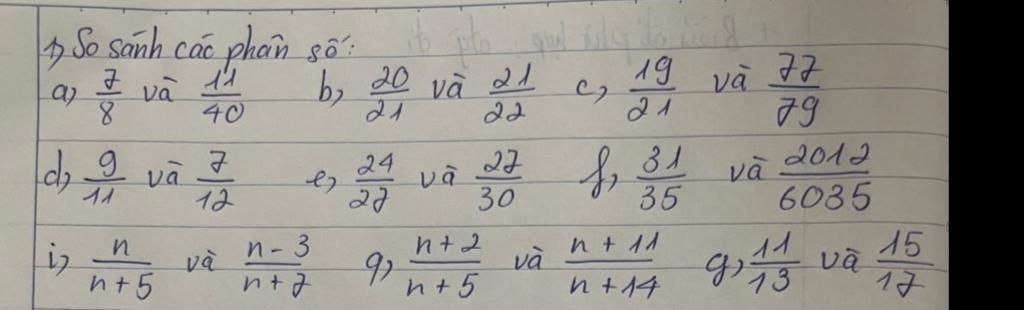 1) So sánh các phân số:
a) 7/8 và 11/40 b) 20/21 và 21/22 c) 19/21 và 77/79
d) 9/11 và 7/12 e) 24/27 và 27/30 f) 31/35 và 2012/6035
i) n/n+5 và n-3/n+7 q) n+2/n+5 và n+11/n+14 g) 11/13 và 15/17